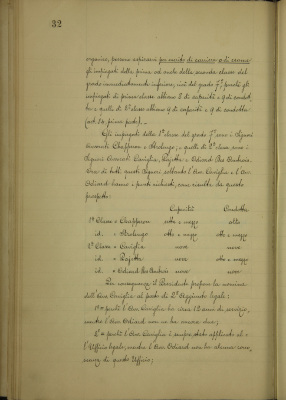 32
organico, possono aspirarvi per merito di carriera, o di esame
gli impiegati della prima od anche della seconda classe del
grado immediatamente inferiore, cioè del grado 7º, purchè gli
impiegati di prima classe abbiano 8 di capacità e 8 di condot-
ta e quelli di 2ª classe abbiano 9 di capacità e 9 di condotta
(art. prima parte).
Gli impiegati della 1ª classe del grado 7º sono i Signori
Avvocati Chapperon e Astengo; quelli di 2ª classe sono i
Signori Avvocati Caviglia, Pajetta e Odiard Des Ambrois.
Ora di tutti questi Signori soltanto l'Avv. Caviglia e l'Avv.
Odiard hanno i punti richiesti, come risulta da questo
prospetto:
Capacità Condotta
1ª Classe Chapperon sette e mezzo otto
id. Astengo otto e mezzo otto e mezzo
2ª Classe Caviglia nove nove
id. Pajetta nove otto e mezzo
id. Odiard Des Ambrois nove nove
In conseguenza il Presidente propone la nomina
dell'Avv. Caviglia al posto di 2º Aggiunto legale:
1º perchè l'Avv. Caviglia ha circa 12 anni di servizio,
mentre l'Avv. Odiard non ne ha ancora due;
2º perchè l'Avv. Caviglia è sempre stato applicato al-
l'Ufficio legale, mentre l'Avv. Odiard non ha alcuna cono-
scenza di questo Ufficio;